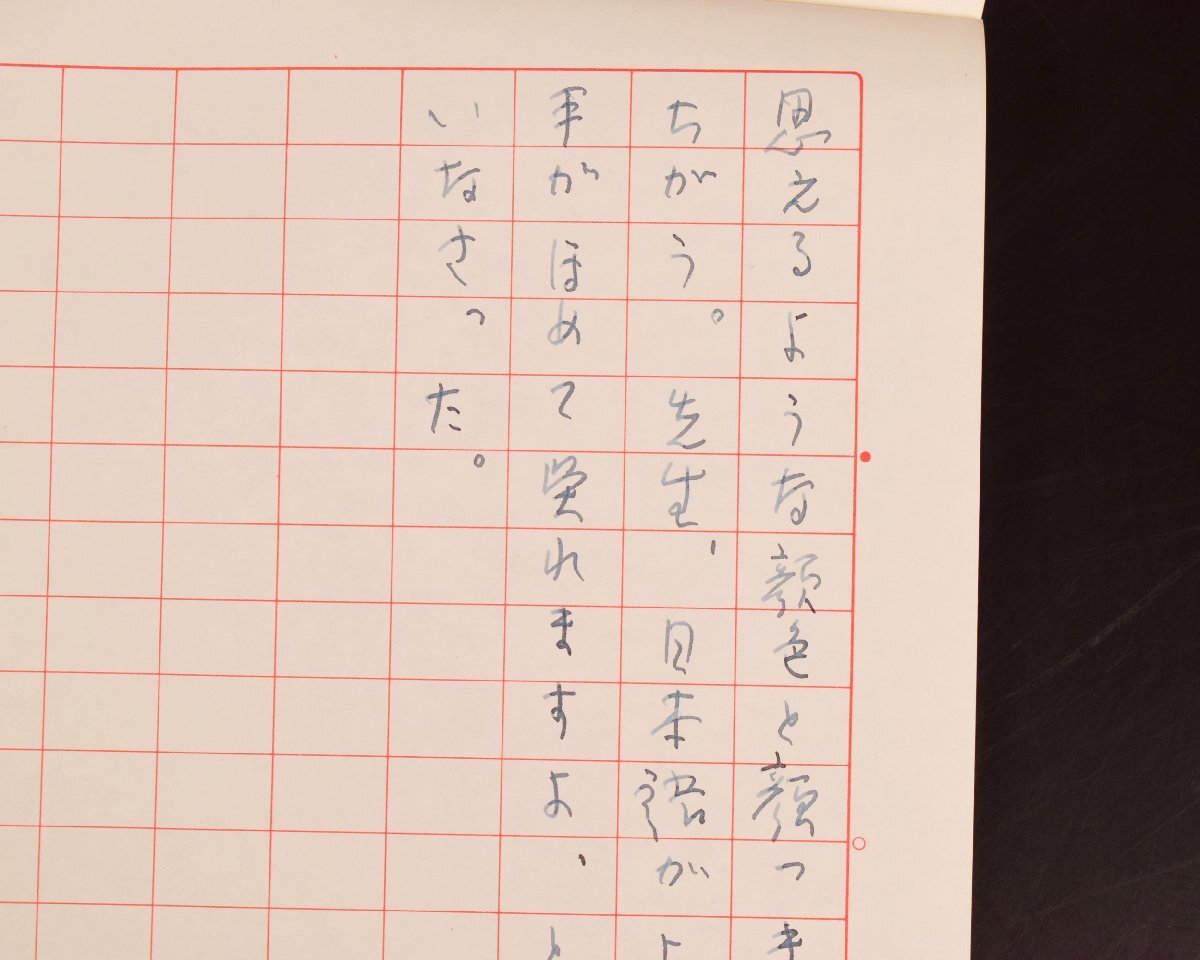 思えるような顔色と顔つき
ちがう。先生、日本語が
軍がほめて呉れますよ、と
いなさった。